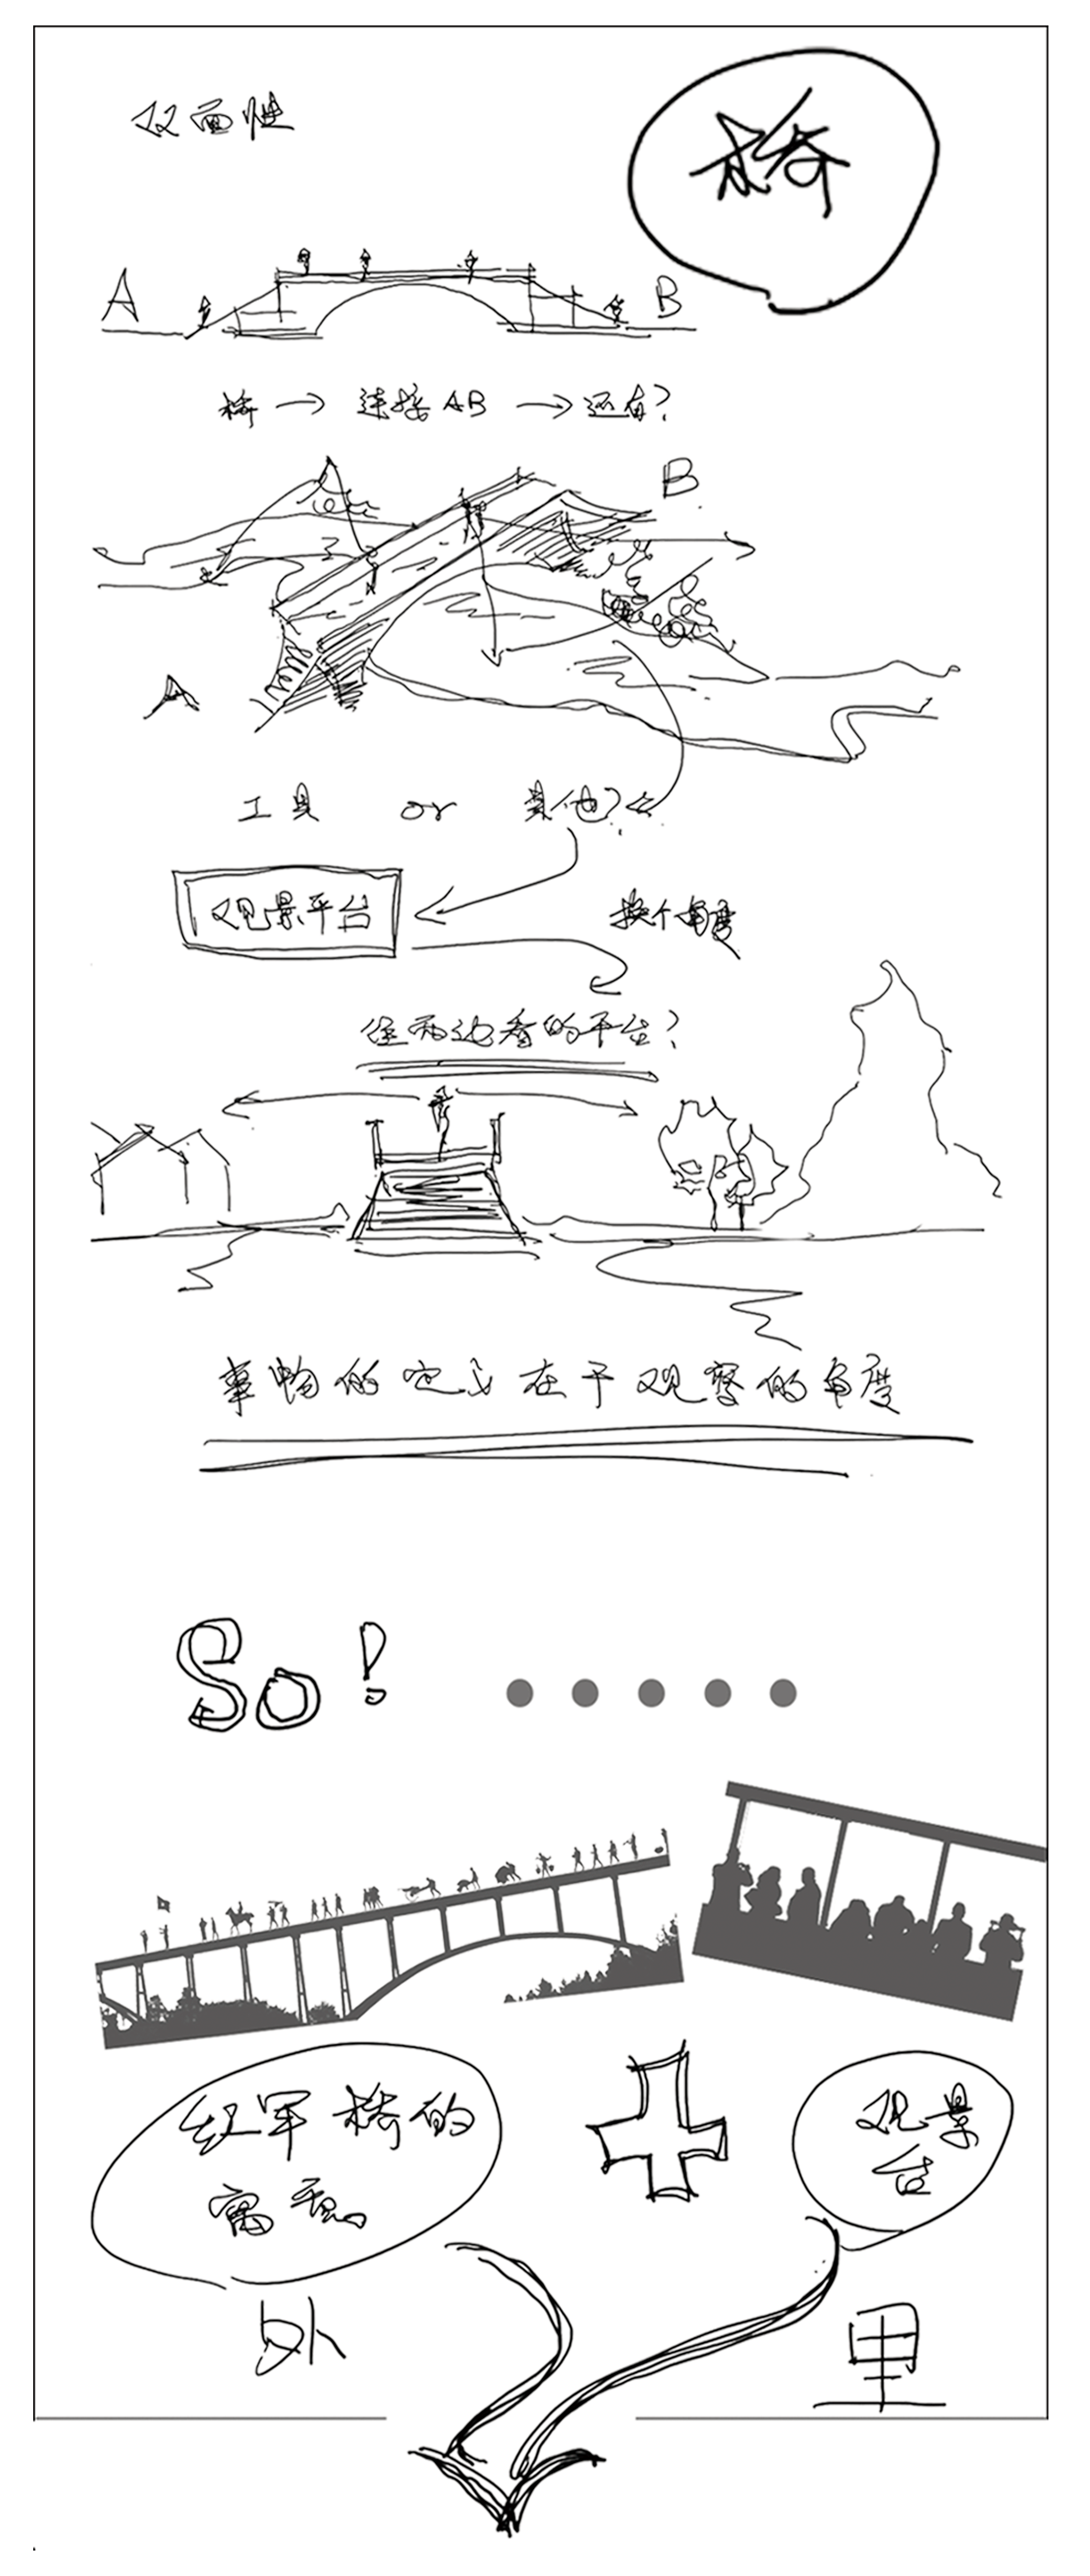 双面性
桥
A
B
桥 → 连接AB → 还有?
B
A
工具 or 其他?
观景平台
换个角度
往两边看的平台?
事物的定义在于观察的角度
So!
红军桥的
寓意
观景
台
外
里